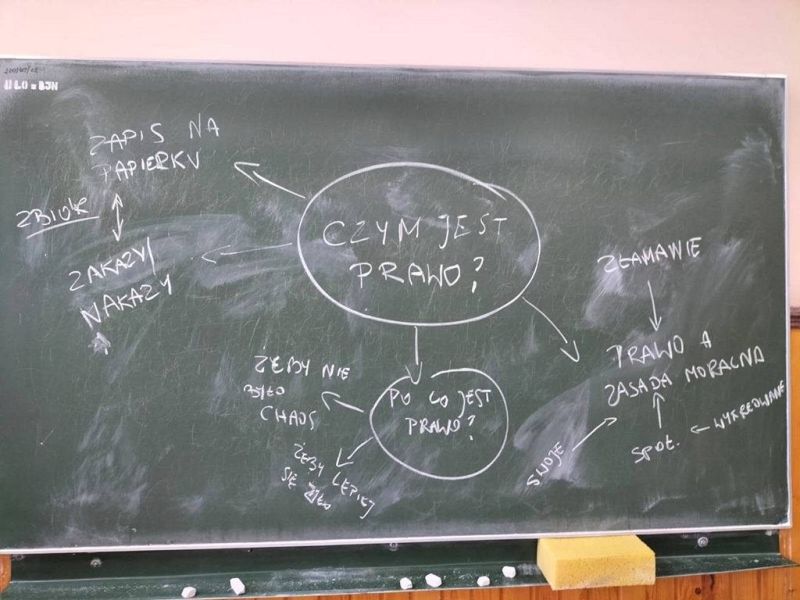 II LO W BJN
ZAPIS NA
PAPIERKU
ZBIÓR
ZAKAZY/
NAKAZY
CZYM JEST
PRAWO?
PO CO JEST
PRAWO?
ŻEBY NIE
BYŁO
CHAOS
ŻEBY LEPIEJ
SIĘ ŻYŁO
ZŁAMANIE
PRAWO A
ZASADA MORALNA
SWOJE
SPOŁ.